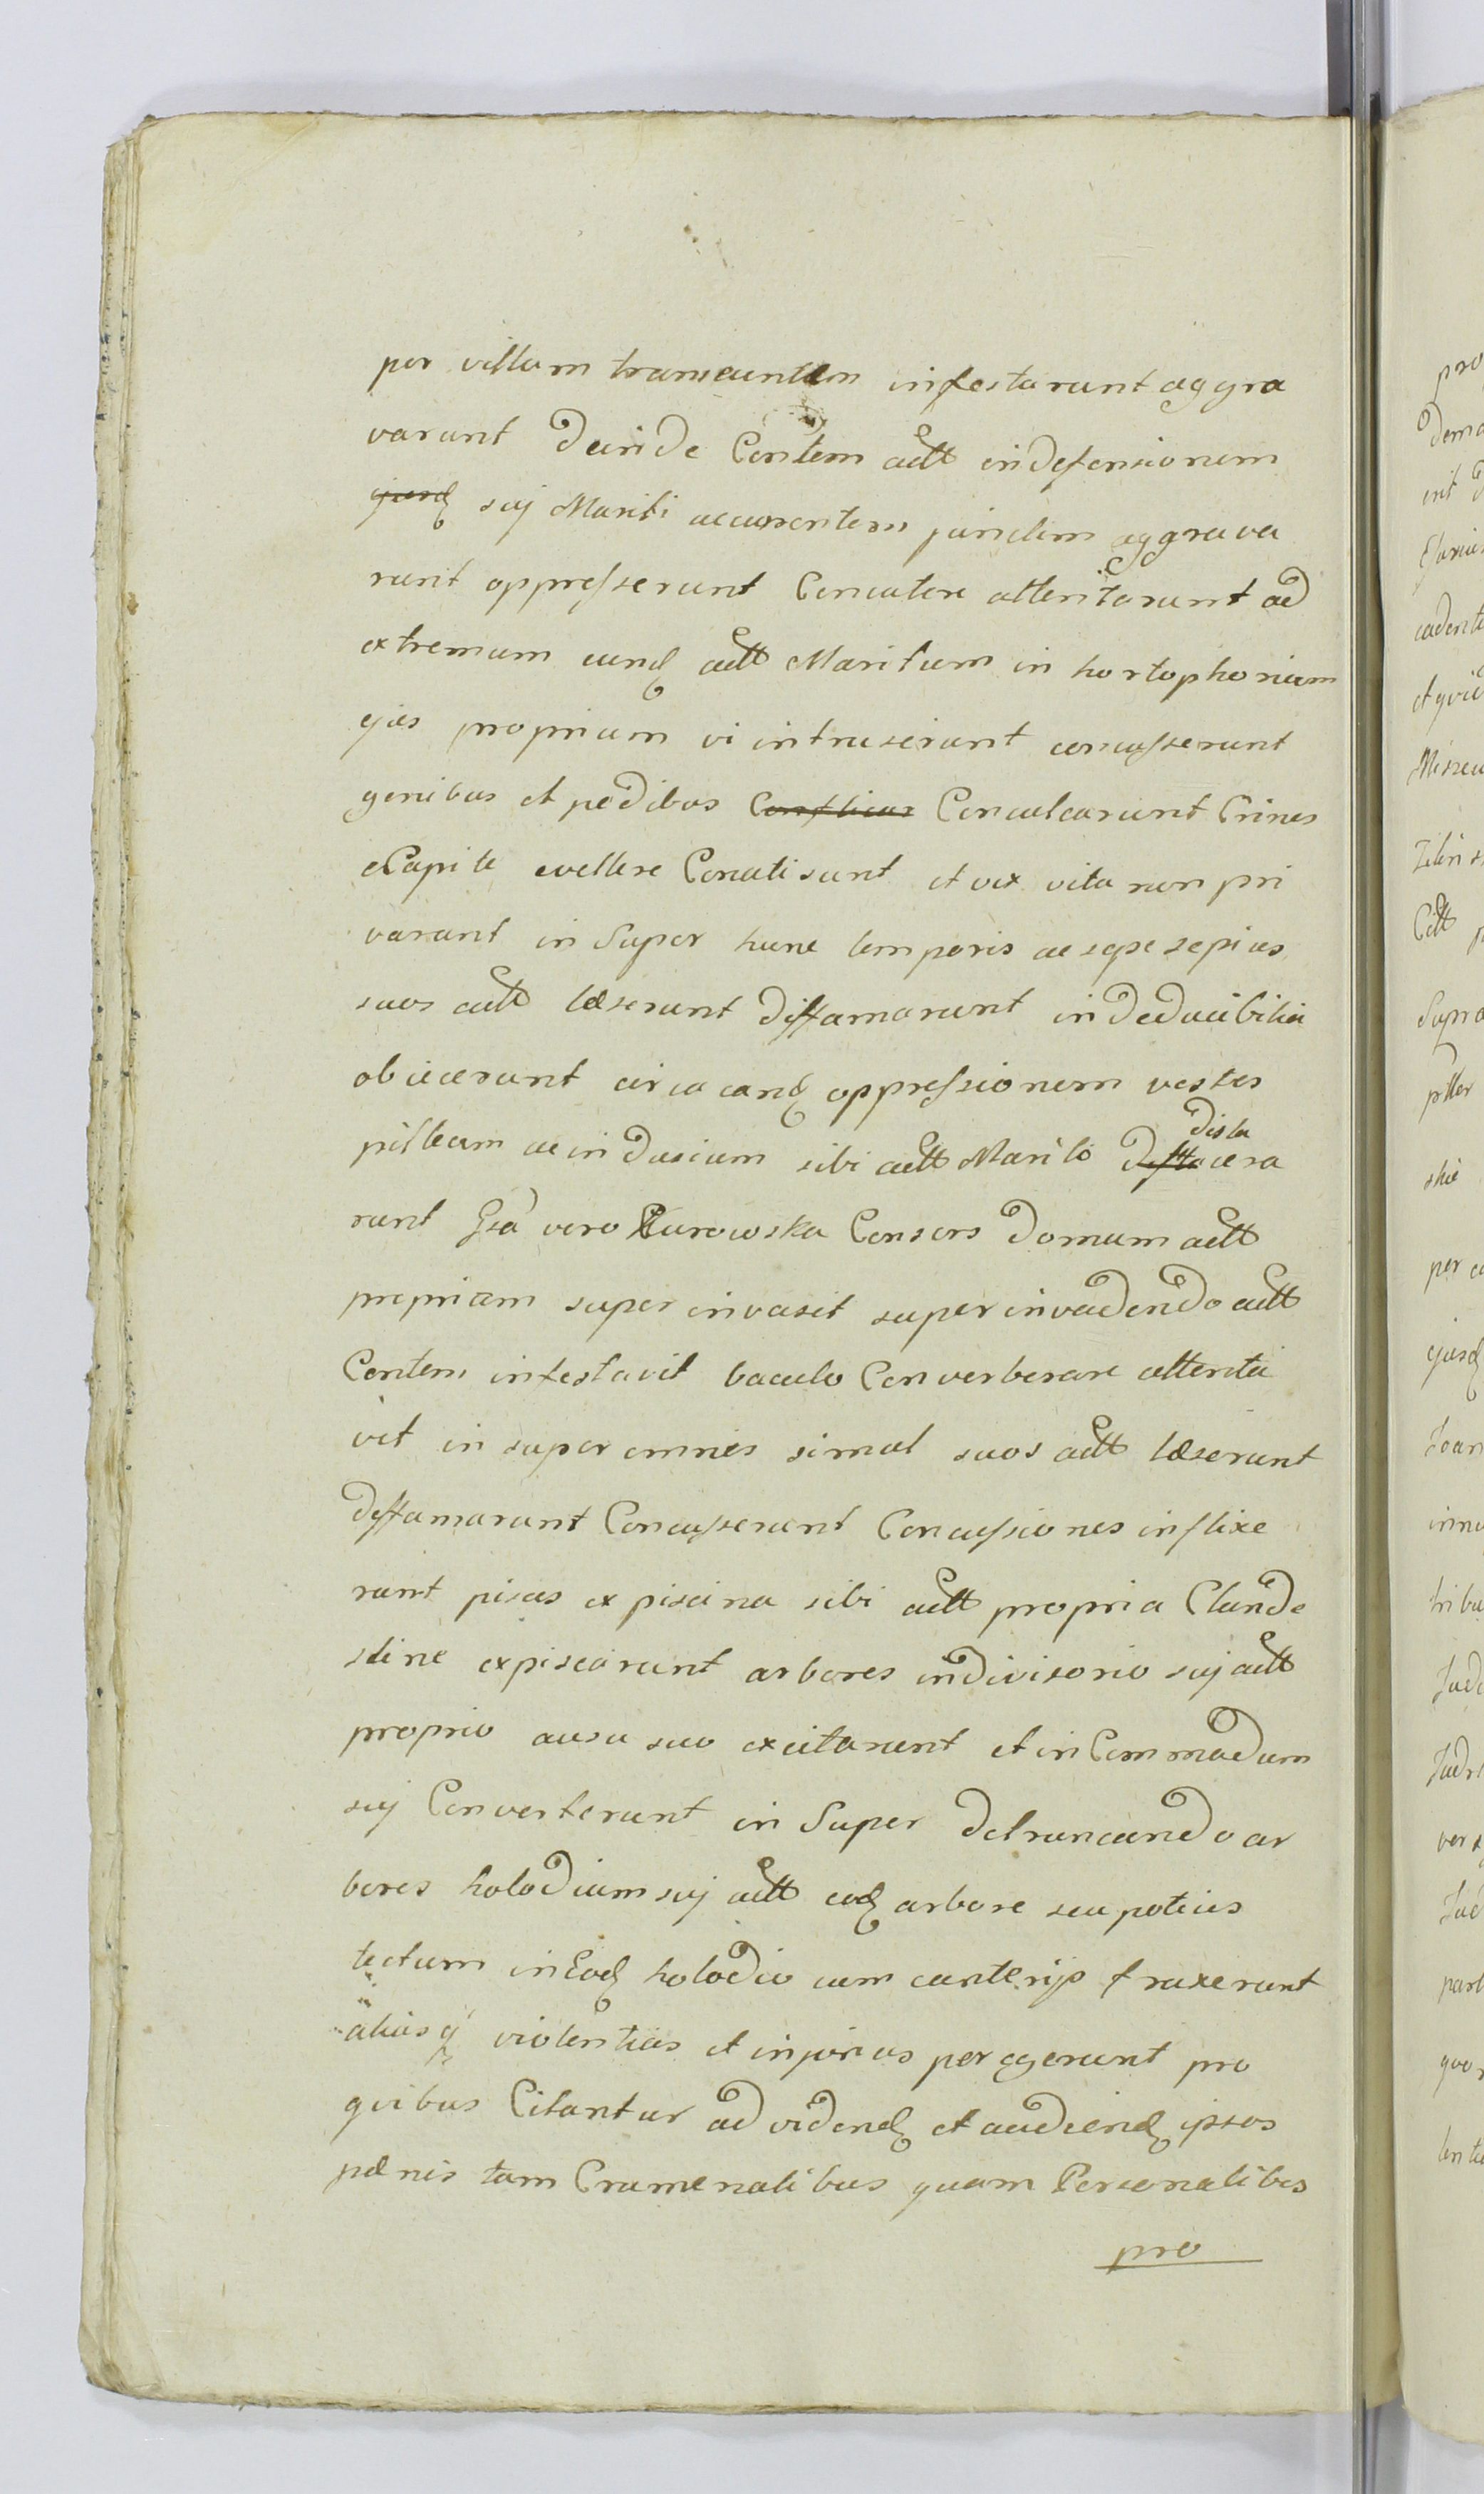 per villam transeuntem infestarunt aggra
varunt deinde Contem actt in defensionem
ejusd suj Mariti accurrentem paridem aggrava
runt oppresserunt Concutere attentarunt ad
extremum eund actt Maritum in hortophorium
ejus proprium vi intruserunt concusserunt
genibus et pedibus Conculcarunt Crines
e Capite evellere Conati sunt et vix vita non pri
varunt in Super hunc temporis ac sepe sepius
suos actt læserunt diffamarunt indeducibilia
obiecerunt circa eand oppressionem vestes
pilleum ac indusium sibi actt Marito dista
cera
runt Gsa vero Kurowska Consors domum actt
propriam super invasit super invadendo actt
Contem infestavit baculo Converberare attenta
vit in super omnes simul suos actt læserunt
diffamarunt Concusserunt Concussiones inflixe
runt pisces ex piscina sibi actt propria Clande
stine expiscarunt arbores in divisorio suj actt
proprio ausu suo excitarunt et in Commodum
suj Converterunt in Super detruncando ar
bores holodium suj actt ead arbore seu potius
tectum in Eod holodio cum canterijs fraxerunt
aliasq violentias et injurias peregerunt pro
quibus Citantur ad vidend et audiend ipsos
pænis tam Crumenalibus quam Personalibus
pro
pro
dema